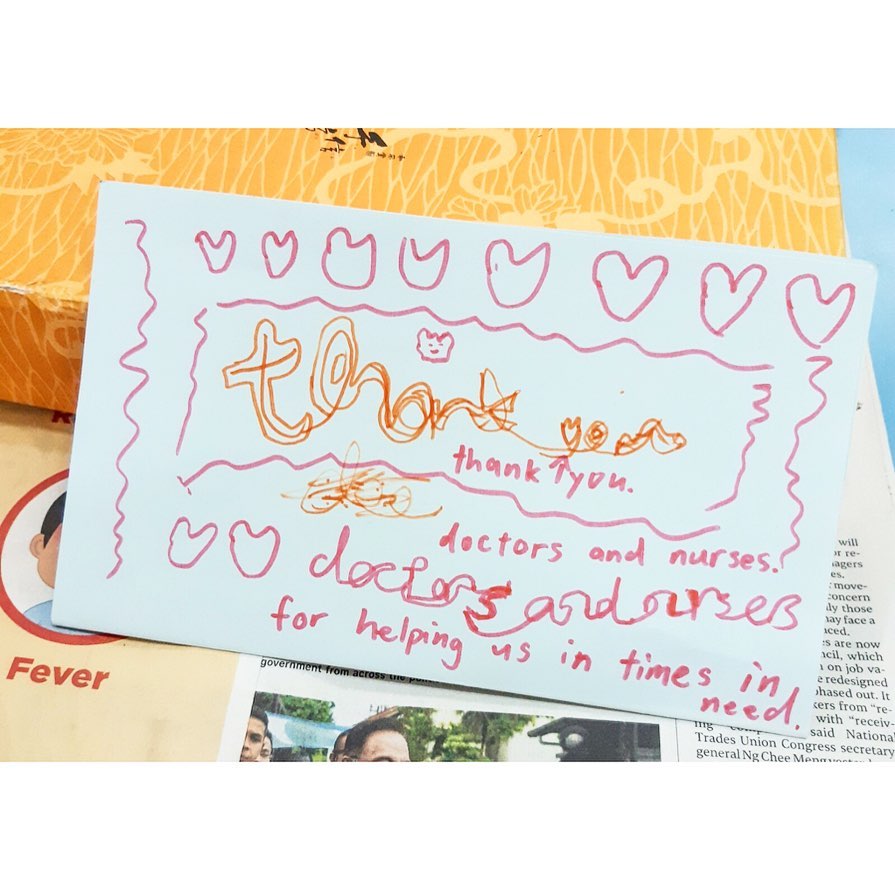 thank you
thank you.
doctors and nurses.
doctors and nurses
for helping us in times in
need.
Fever
government from across the
will
or re-
nagers
es.
move-
concern
ly those
may face a
ced.
es are now
cil, which
on job va-
redesigned
phased out. It
kers from "re-
with "receiv-
ing
said National
Trades Union Congress secretary
general Ng Chee Meng yesterday